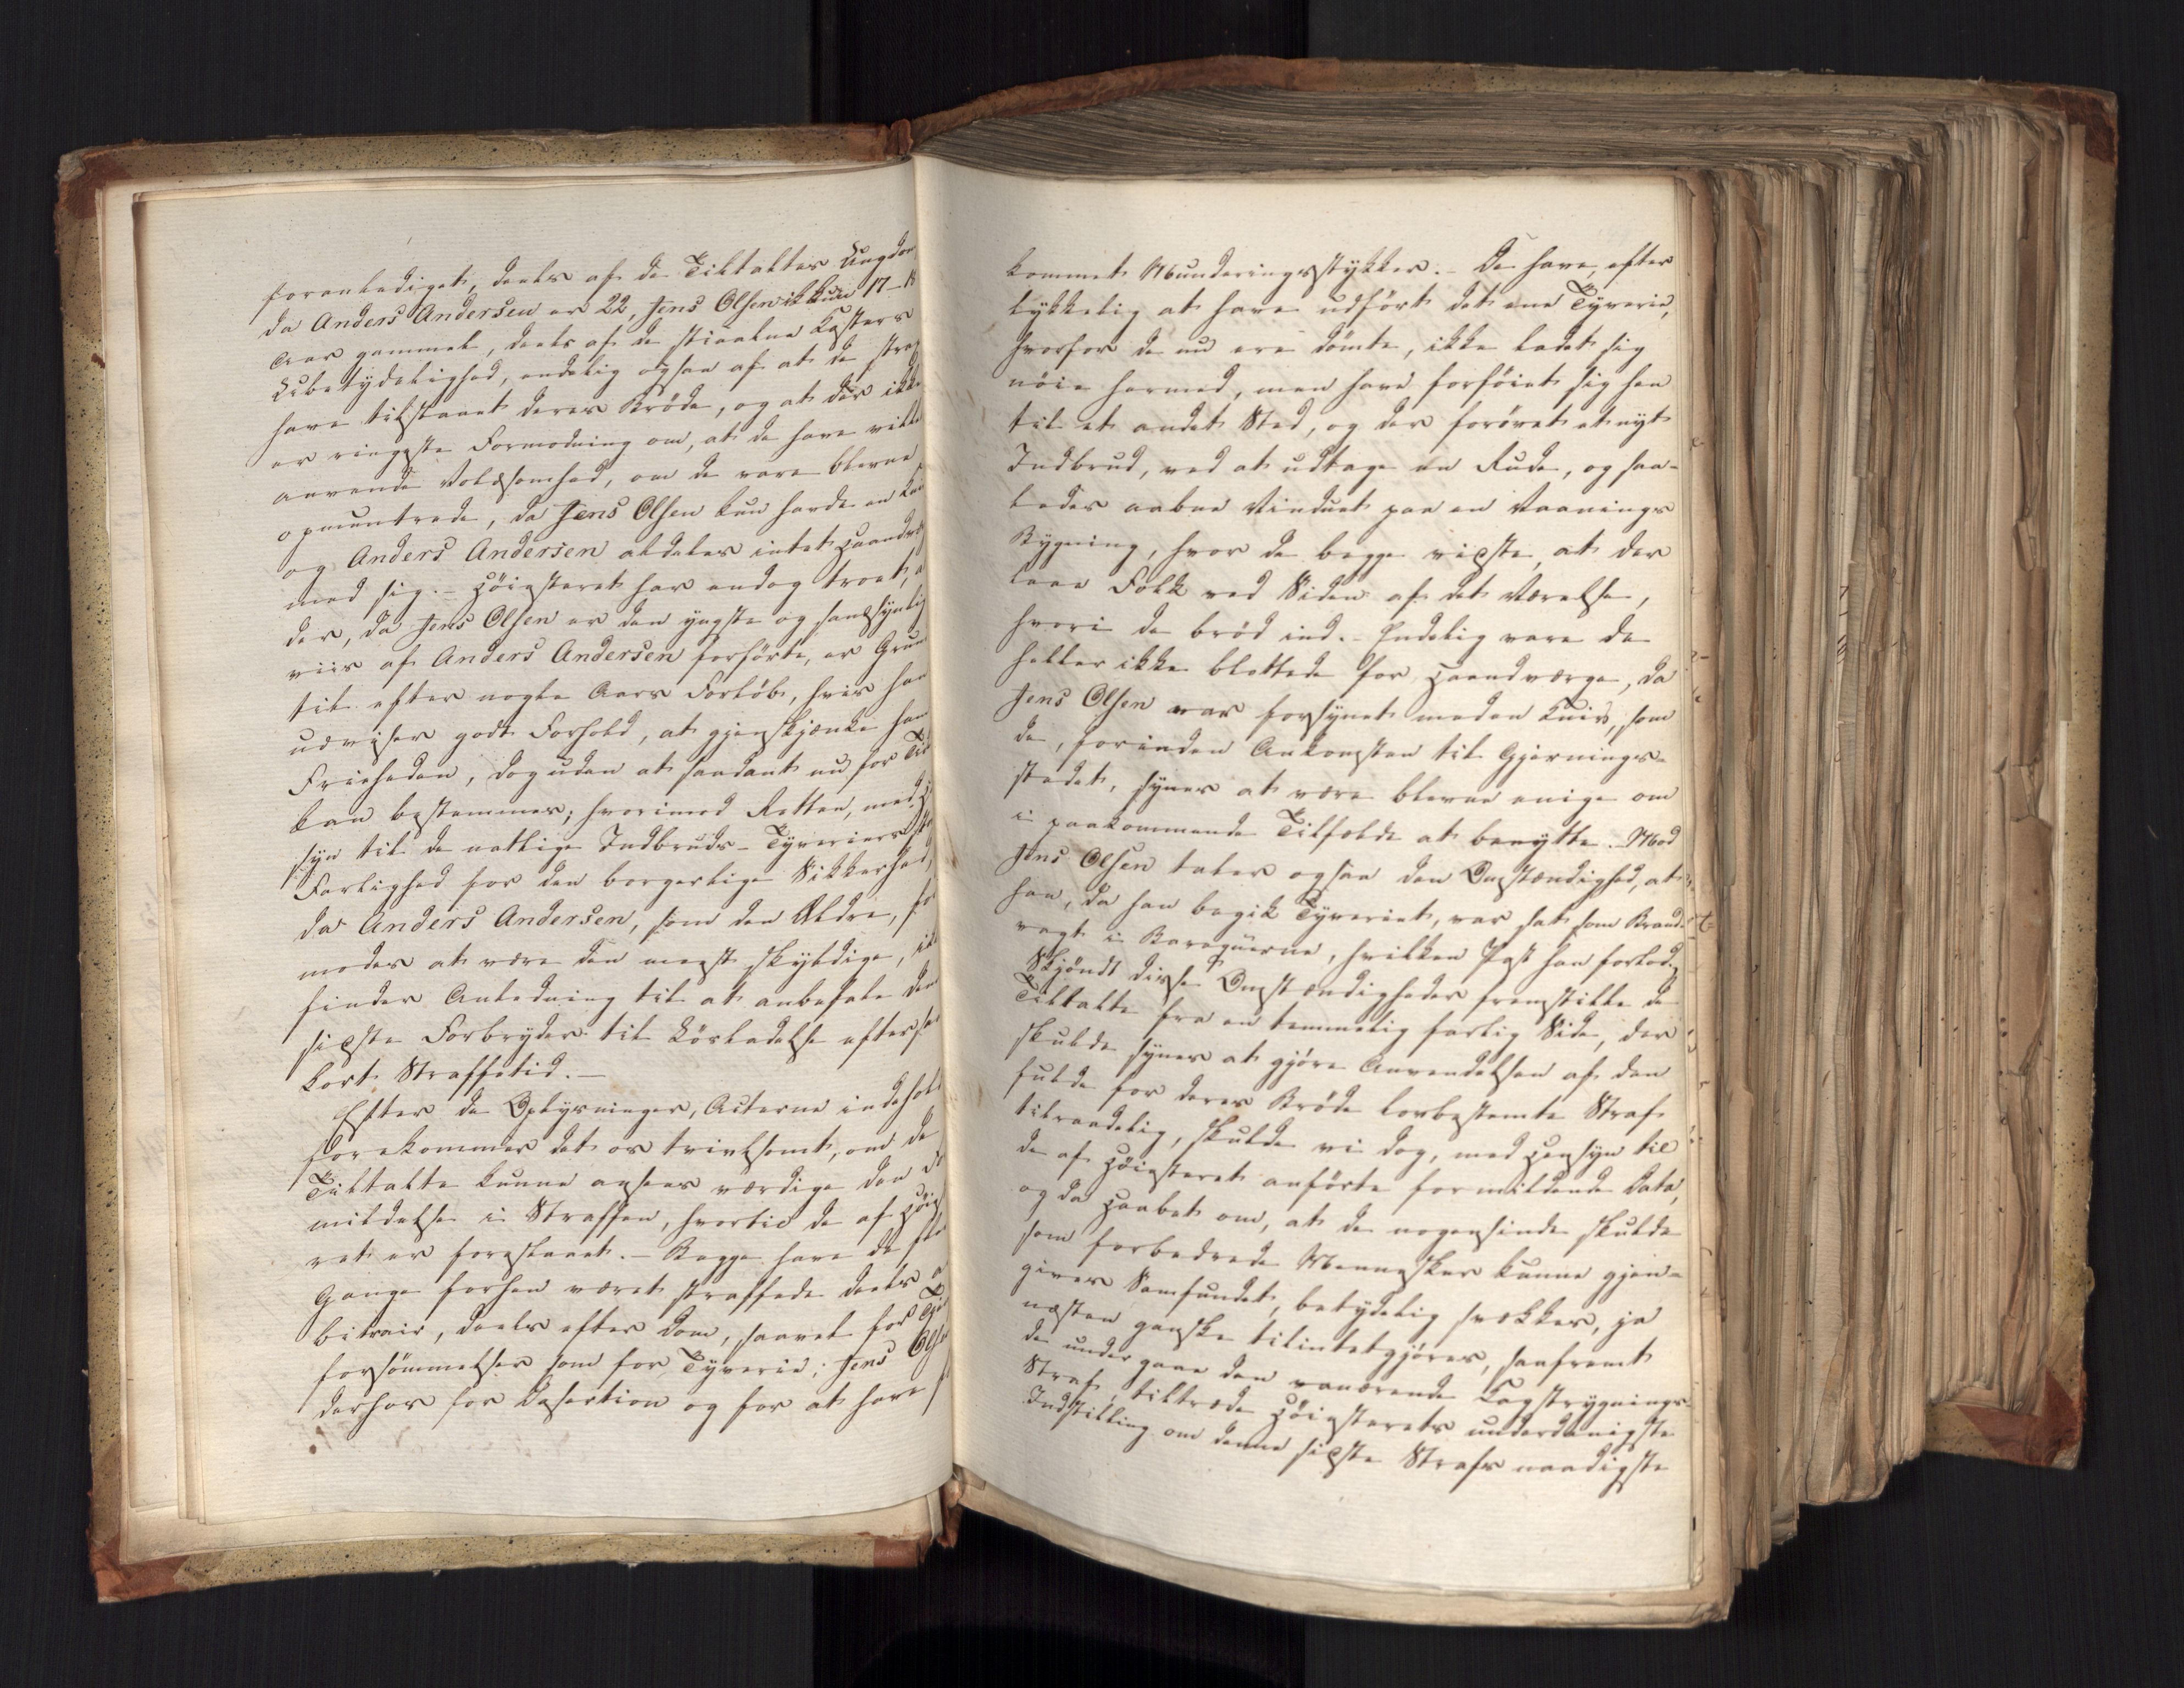 foranlediget, deels af de Tiltaltes Ungdom
da Anders Andersen er 22, Jens Olsen ikkun 17-18
Aar gammel, deels af de stiaalne Kosters
Ubetydelighed, endelig ogsaa af at de strax
have tilstaaet deres Brøde, og at der ikke
er ringeste Formodning om, at de have villet
anvende Voldsomhed, om de vare blevne
opmuntrede, da Jens Olsen kun havde en Kniv
og Anders Andersen aldeles intet Haandværge
med sig. - Høiesteret har endog troet, at
der, da Jens Olsen er den yngste og sandsynlig
viis af Anders Andersen forførte, er Grund
til efter nogle Aars Forløb, hvis han
udviser godt Forhold, at gjenskjænke ham
Friheden, dog uden at saadant nu for Tiden
kan bestemmes; hvorimod Retten, med Hen
syn til de natlige Indbruds-Tyveriers
Farlighed for den borgerlige Sikkerhed,
da Anders Andersen, som den Ældre, for
modes at være den meest skyldige, ikke
finder Anledning til at anbefale den
sidste Forbryder til Løsladelse efter saa
kort Straffetid. -
Efter de Oplysninger, Acterne indeholde
forekommer det os tvivlsomt, om de
Tiltalte kunne ansees værdige den For
mildelse i Straffen, hvortil de af Høieste
ret er foreslaaet. - Begge have de flere
Gange forhen været straffede deels ar
bitrair, deels efter Dom, saavel for Tjeneste
forsømmelser som for Tyverie; Jens Olsen
derhos for Desertion og for at have
kommet Munderingsstykker. - De have, efter
lykkelig at have udført det ene Tyverie,
hvorfor de nu ere dømte, ikke ladet sig
nöie hermed, men have forföiet sig hen
til et andet Sted, og der forøvet et nyt
Indbrud, ved at udtage en Rude, og saa-
ledes aabne Vinduet paa en Vaanings
Bygning, hvor de begge vidste, at der
laae Folk ved Siden af det Værelse,
hvori de brød ind. - Endelig vare de
heller ikke blottede for Haandværge, da
Jens Olsen var forsynet med en Kniv, som
de, forinden Ankomsten til Gjernings-
stedet, synes at være blevne enige om
i paakommende Tilfælde at benytte. - Mod
Jens Olsen taler ogsaa den Omstændighed, at
han, da han begik Tyveriet, var sat som Brand-
vagt i Baraquerne, hvilken Post han forlod.
Skjöndt disse Omstændigheder fremstille de
Tiltalte fra en temmelig farlig Side, der
skulde synes at gjöre Anvendelsen af den
fulde for deres Brøde lovbestemte Straf
tilraadelig, skulde vi dog, med Hensyn til
de af Høiesteret anførte formildende Data,
og da Haabet om, at de nogensinde skulde
som forbedrede Mennesker kunne gjen-
gives Samfundet, betydelig svækkes, ja
næsten ganske tilintetgjöres, saafremt
de undergaae den vanærende Kagstrygnings-
Straf, tiltræde Høiesterets underdanigste
Indstilling om denne sidste Strafs naadigste